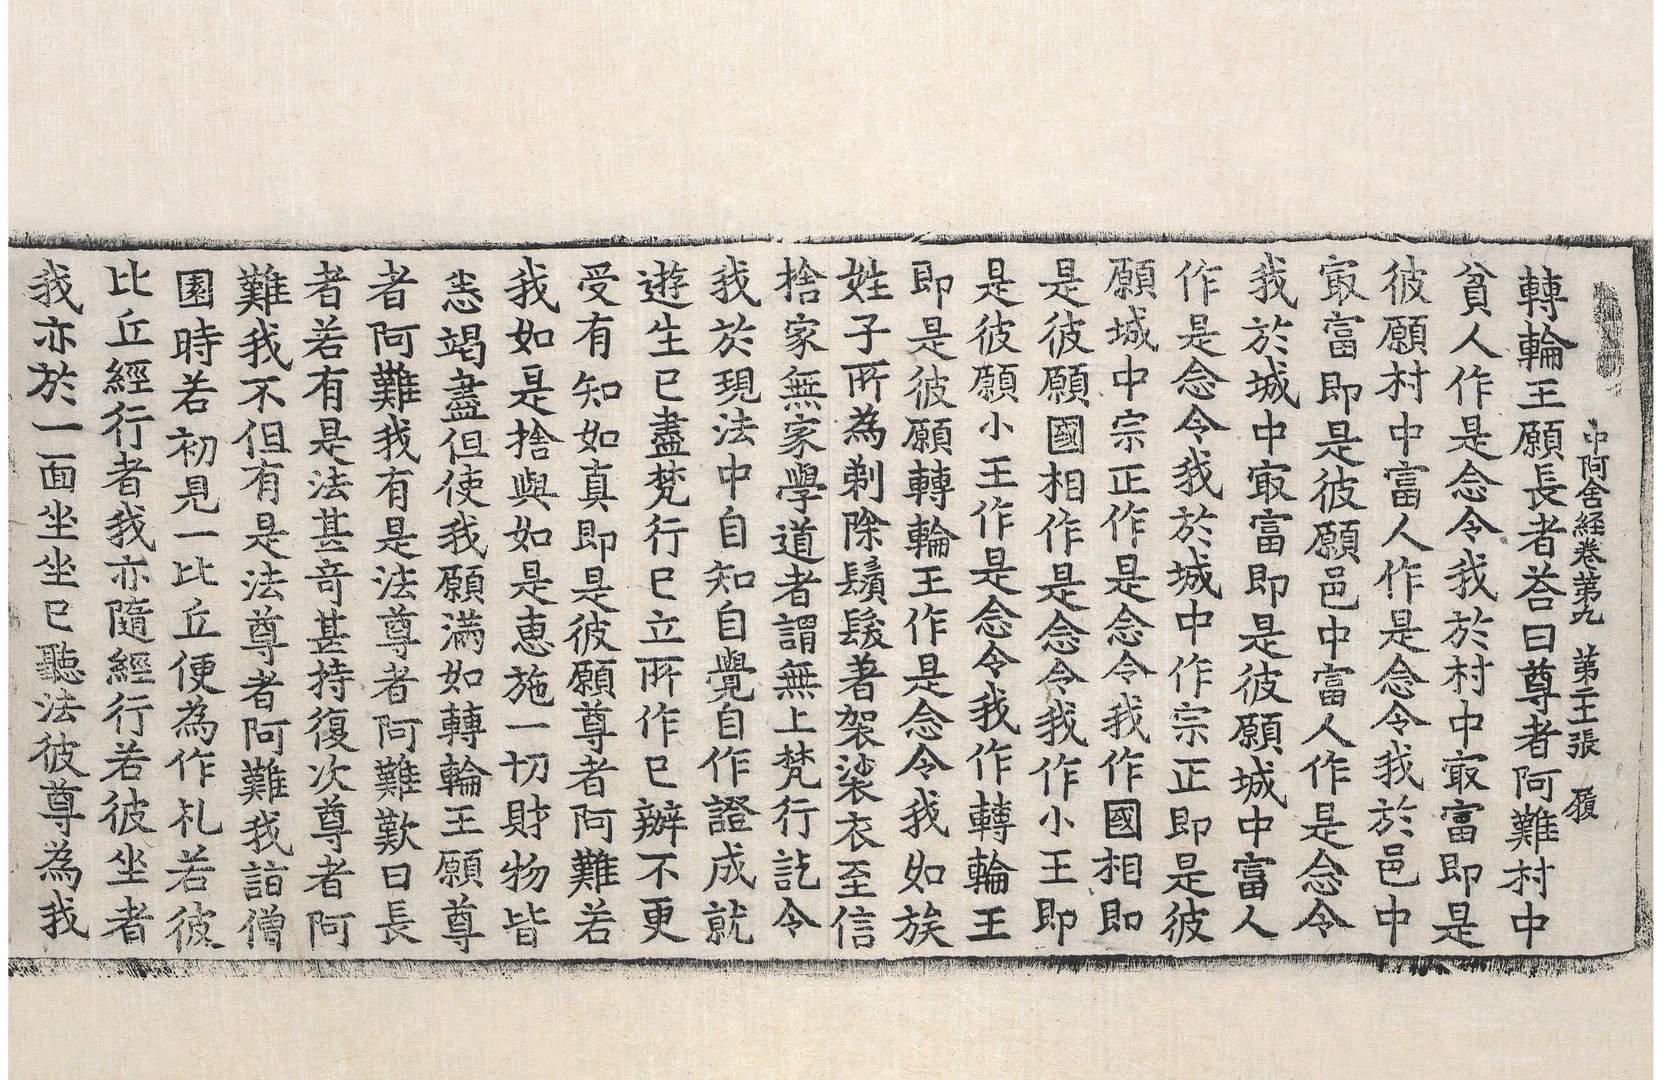 中阿含經卷第九　第二十張　履
轉輪王願長者荅曰尊者阿難村中
貧人作是念令我於村中㝡富即是
彼願村中富人作是念令我於邑中
㝡富即是彼願邑中富人作是念令
我於城中㝡富即是彼願城中富人
作是念令我於城中作宗正即是彼
願城中宗正作是念令我作國相即
是彼願國相作是念令我作小王即
是彼願小王作是念令我作轉輪王
即是彼願轉輪王作是念令我如族
姓子所為剃除鬚髮著袈裟衣至信
捨家無家學道者謂無上梵行訖令
我於現法中自知自覺自作證成就
遊生已盡梵行已立所作已辦不更
受有知如真即是彼願尊者阿難若
我如是捨與如是恵施一切財物皆
悉竭盡但使我願满如轉輪王願尊
者阿難我有是法尊者阿難歎曰長
者若有是法甚竒甚持復次尊者阿
難我不但有是法尊者阿難我詣僧
園時若初見一比丘便為作礼若彼
比丘經行者我亦隨經行若彼坐者
我亦於一面坐坐已聽法彼尊為我